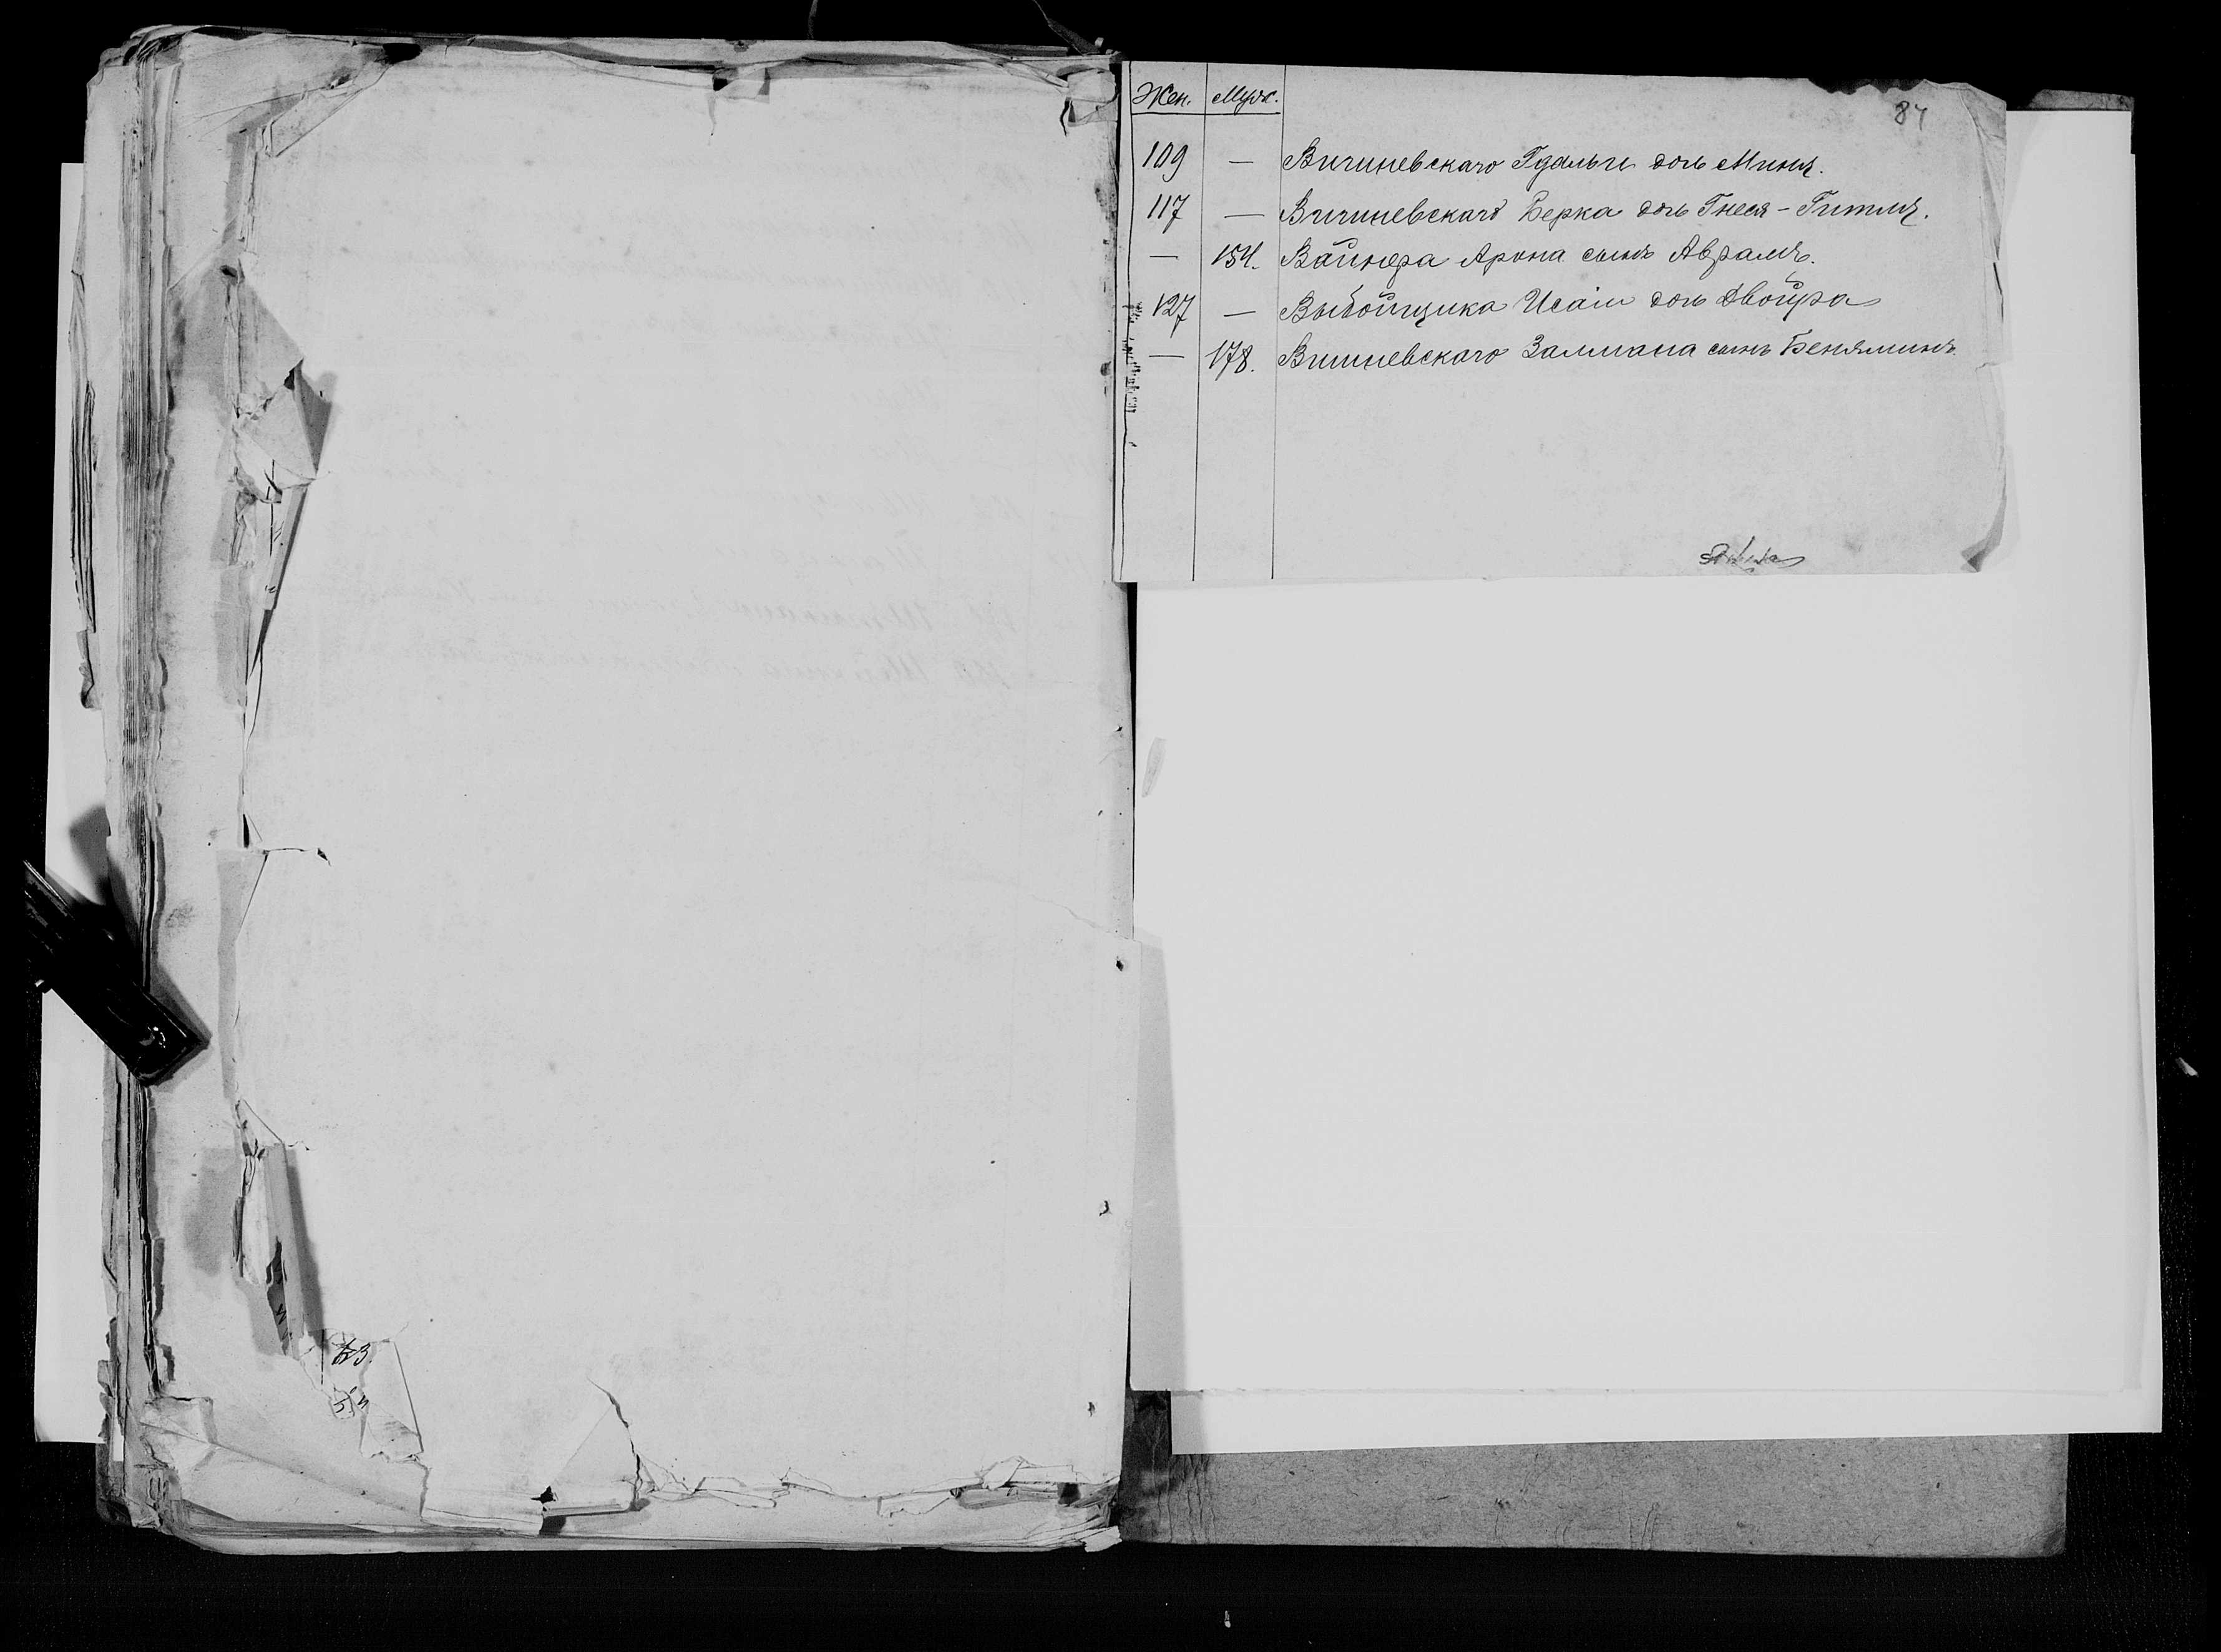 Жен. Муж.
84
109 — Вишневскаго Гдальи дочь Миня.
117 — Вишневскаго Берка дочь Гнеся-Гитля.
— 154. Вайнера Арона сынъ Аврамъ.
127 — Выбойщика Исаіи дочь Двойра
— 178. Вишневскаго Залмана сынъ Беняминъ.